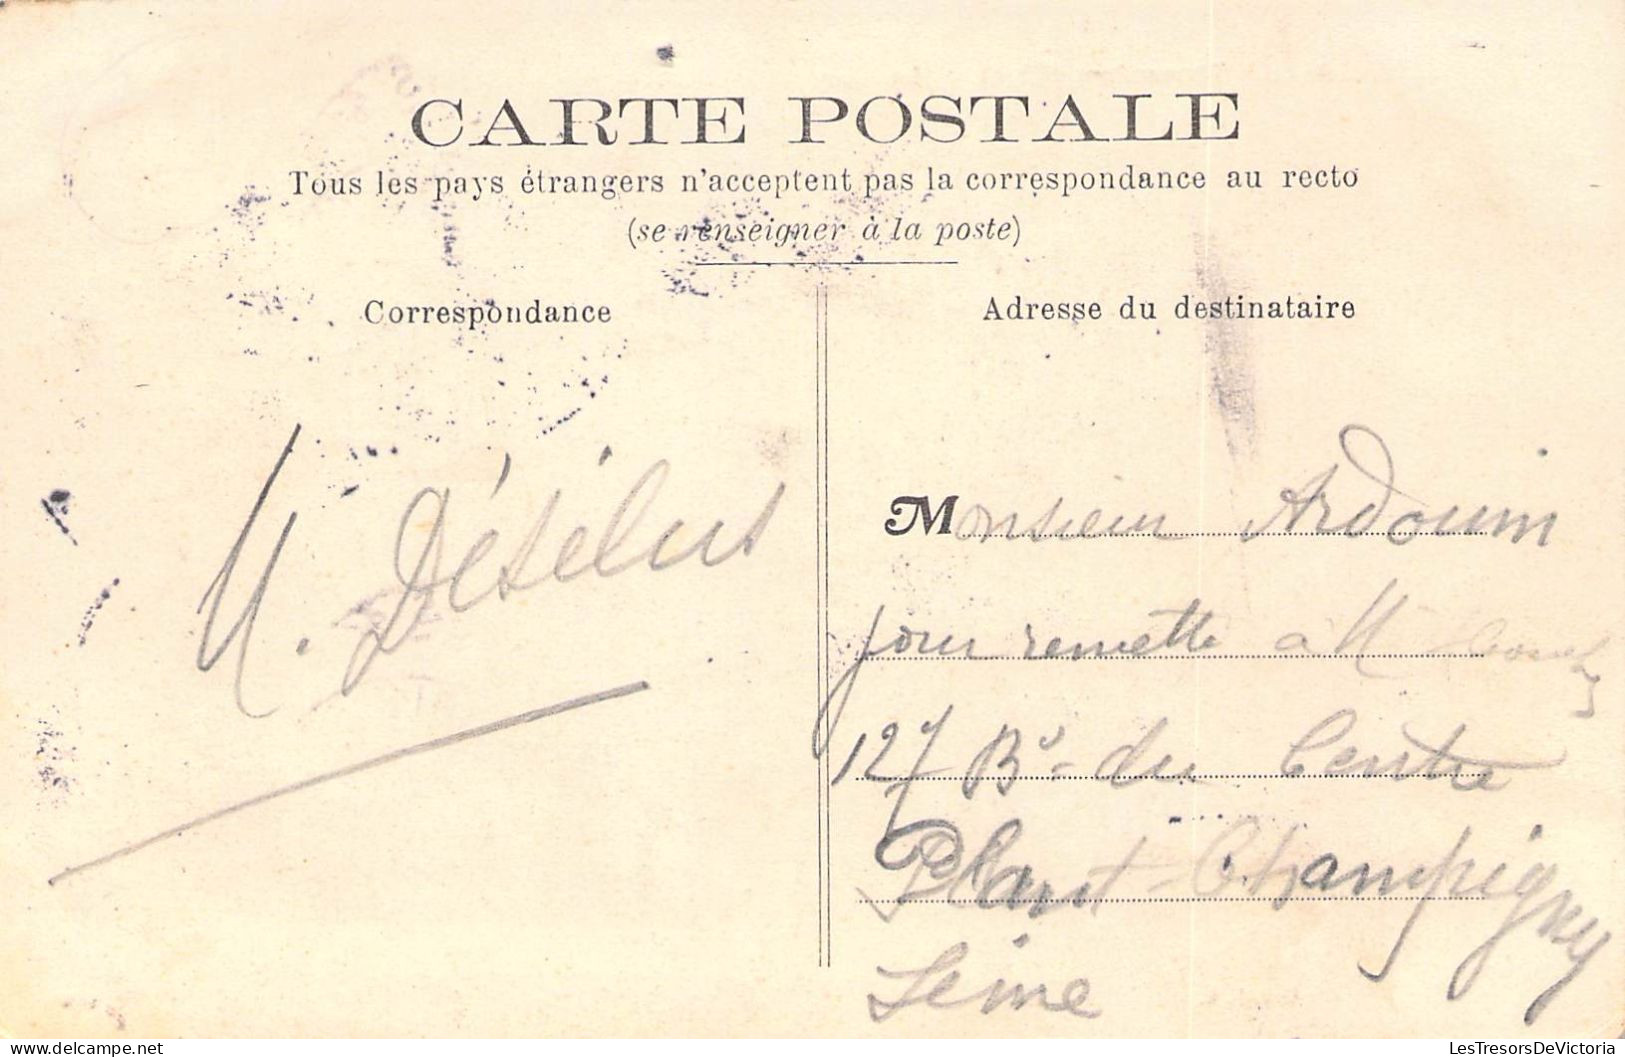 CARTE POSTALE
Tous les pays étrangers n'acceptent pas la correspondance au recto
(se renseigner à la poste)
Correspondance
Adresse du destinataire
M. Désélus
Monsieur Ardouin
pour remettre a M
127 Bd du Centre
Plant-Champigny
Seine
LesTresorsDeVictoria
www.delcampe.net